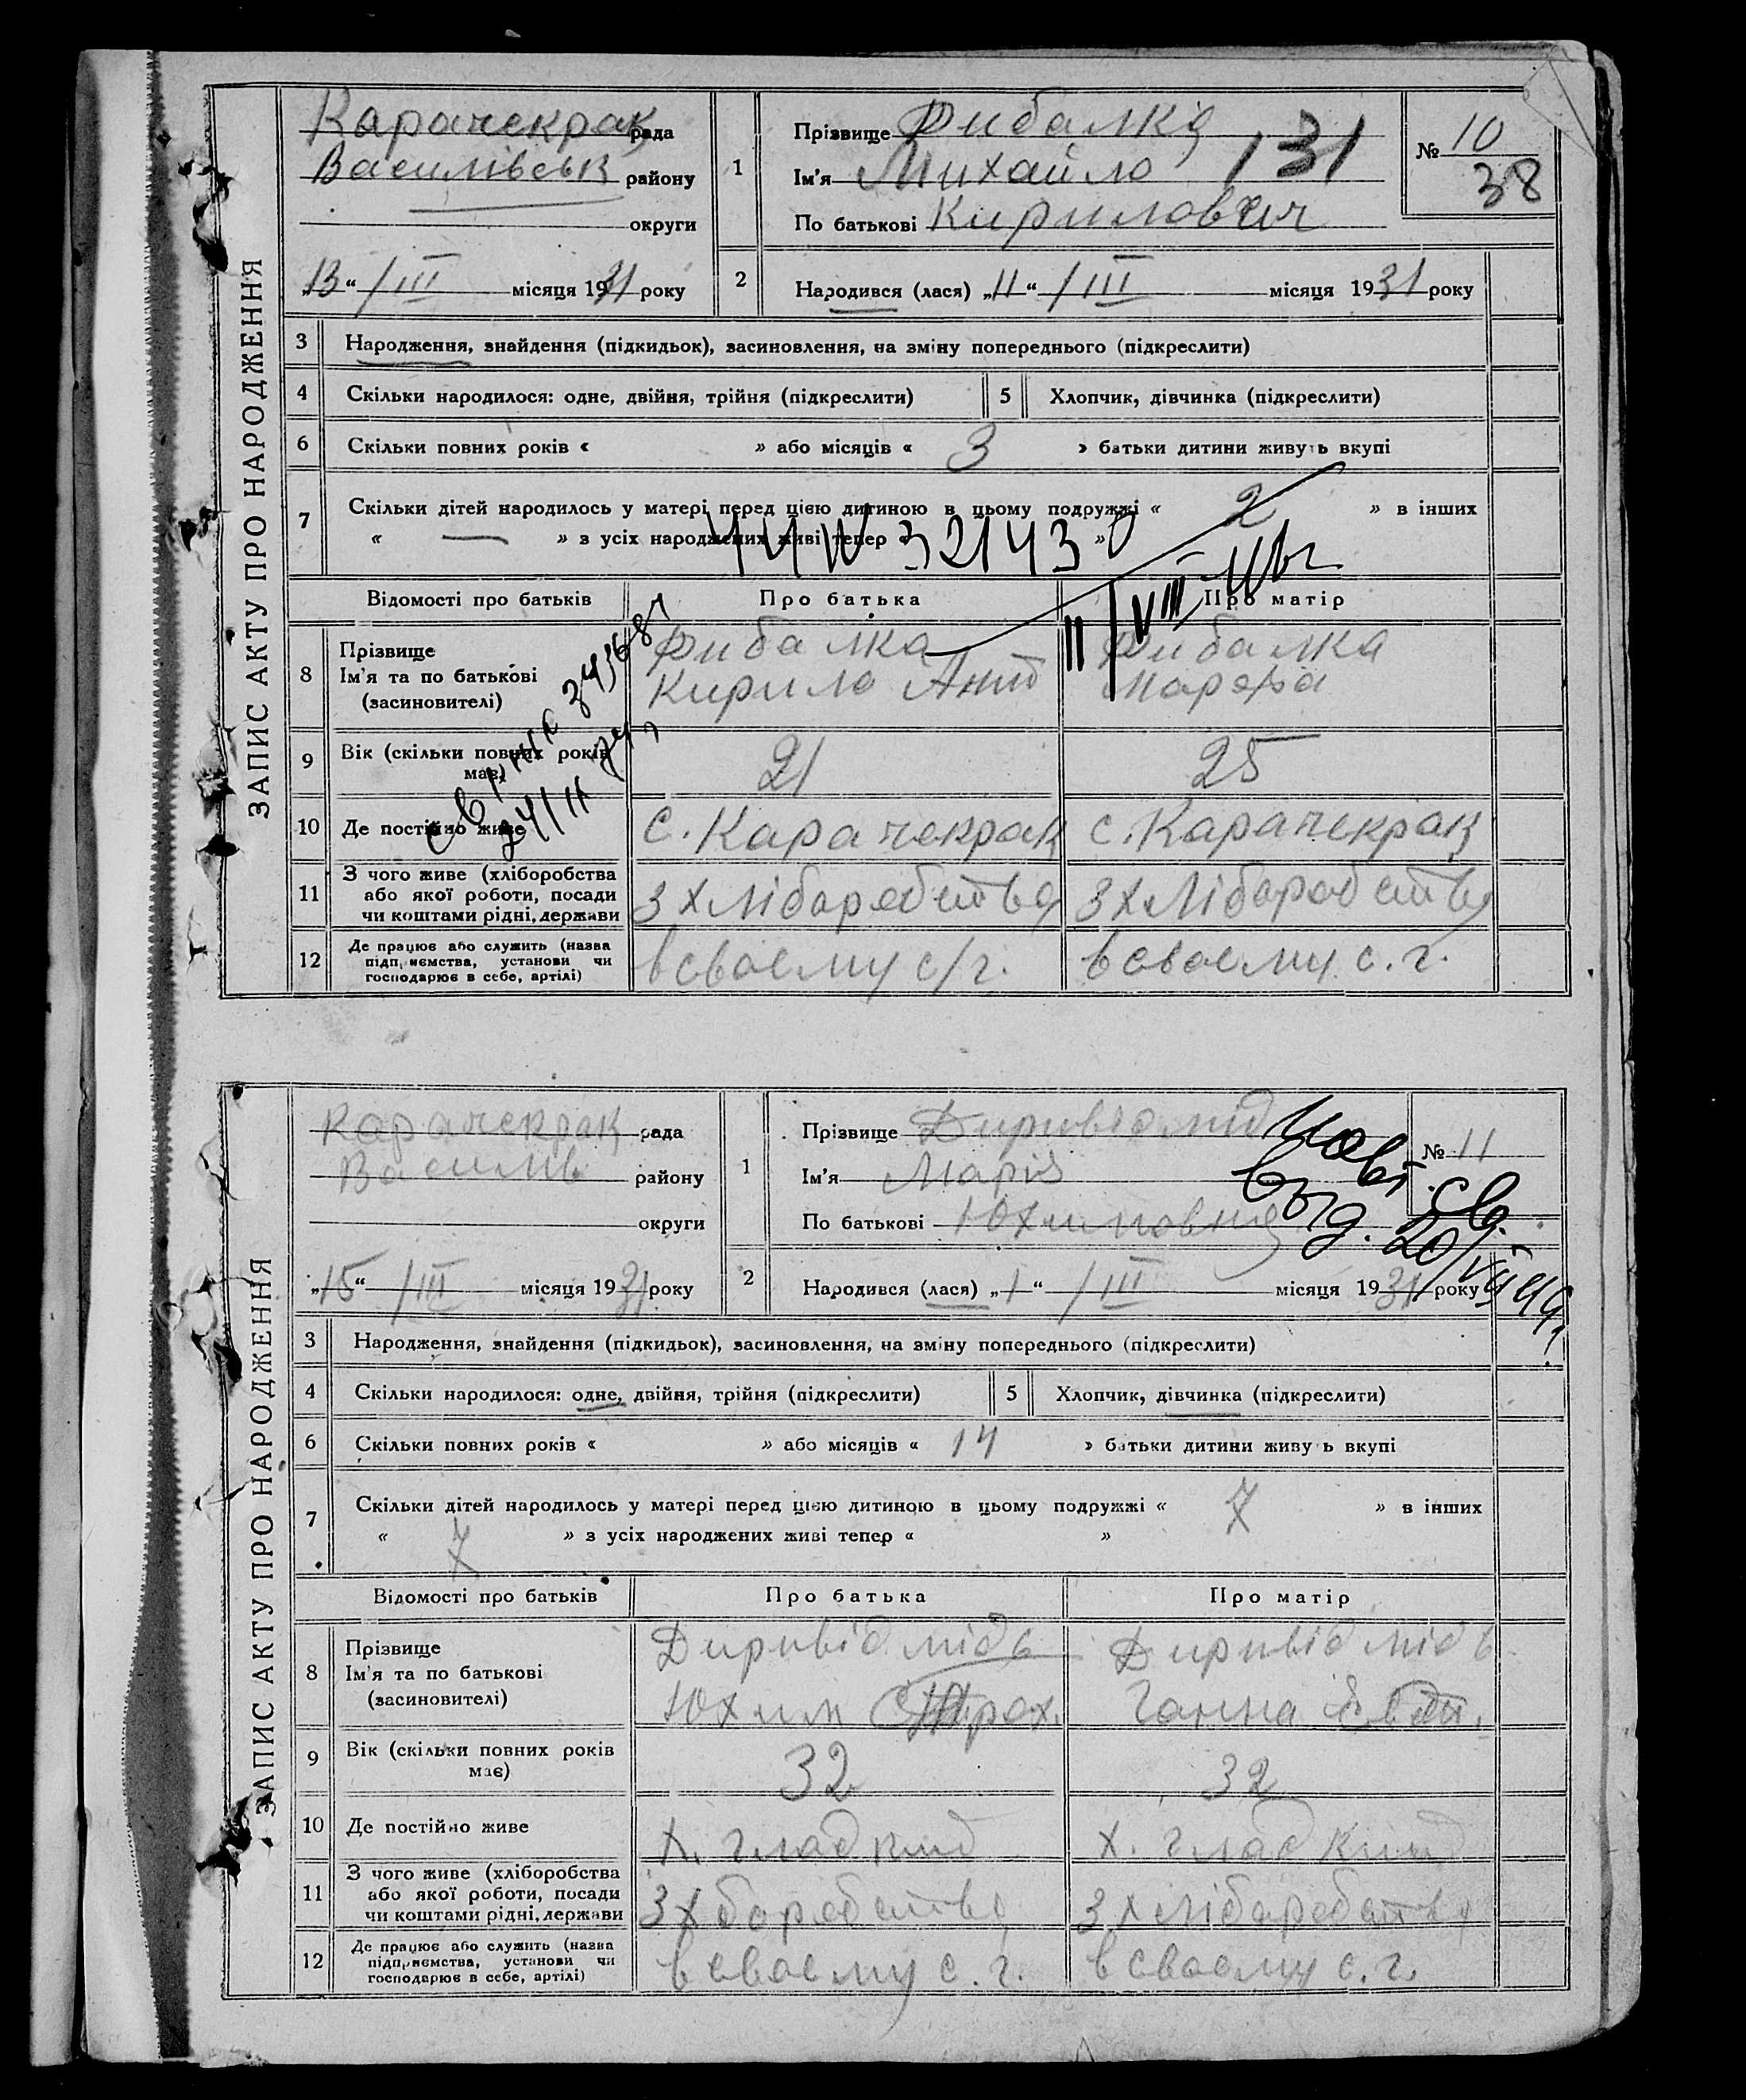 ЗАПИС АКТУ ПРО НАРОДЖЕННЯ
Карачекрак рада
Василівськ району
округи
„13“ /III місяця 1931 року
1
Прізвище Рибалка
Ім'я Михайло 131
По батькові Кирилович
№ 10
38
2 Народився (лася) „11“ /III місяця 1931 року
3 Народження, знайдення (підкидьок), засиновлення, на зміну попереднього (підкреслити)
4 Скільки народилося: одне, двійня, трійня (підкреслити) 5 Хлопчик, дівчинка (підкреслити)
6 Скільки повних років « » або місяців « 3 » батьки дитини живуть вкупі
7 Скільки дітей народилось у матері перед цією дитиною в цьому подружжі « 2 » в інших
« — » з усіх народжених живі тепер « »
Відомості про батьків Про батька Про матір
8 Прізвище
Ім'я та по батькові
(засновителі)
Рибалка
Кирило Ант
Рибалка
Марфа
9 Вік (скільки повних років
має) 21 25
10 Де постійно живе с. Карачекрак с. Карачекрак
11 З чого живе (хліборобства
або якої роботи, посади
чи коштами рідні, держави
з хліборобства з хліборобства
12 Де працює або служить (назва
підприємства, установи чи
господарює в себе, артілі)
в своєму с/г. в своєму с. г.
ЗАПИС АКТУ ПРО НАРОДЖЕННЯ
Карачекрак рада
Василів району
округи
„15“ /III місяця 1931 року
1
Прізвище
Ім'я Марія
По батькові Юхимовна
№ 11
св.
20/VII 49 г.
2 Народився (лася) „1“ /III місяця 1931 року
3 Народження, знайдення (підкидьок), засиновлення, на зміну попереднього (підкреслити)
4 Скільки народилося: одне, двійня, трійня (підкреслити) 5 Хлопчик, дівчинка (підкреслити)
6 Скільки повних років « » або місяців « 14 » батьки дитини живуть вкупі
7 Скільки дітей народилось у матері перед цією дитиною в цьому подружжі « 7 » в інших
« 7 » з усіх народжених живі тепер « »
Відомості про батьків Про батька Про матір
8 Прізвище
Ім'я та по батькові
(засиновителі)
Диривідмідь
Юхим
Диривідмідь
Ганна
9 Вік (скільки повних років
має) 32 32
10 Де постійно живе х. Гладкий х. Гладкий
11 З чого живе (хліборобства
або якої роботи, посади
чи коштами рідні, держави
з хліборобства
12 Де працює або служить (назва
підприємства, установи чи
господарює в себе, артілі)
в своєму с. г. в своєму с. г.